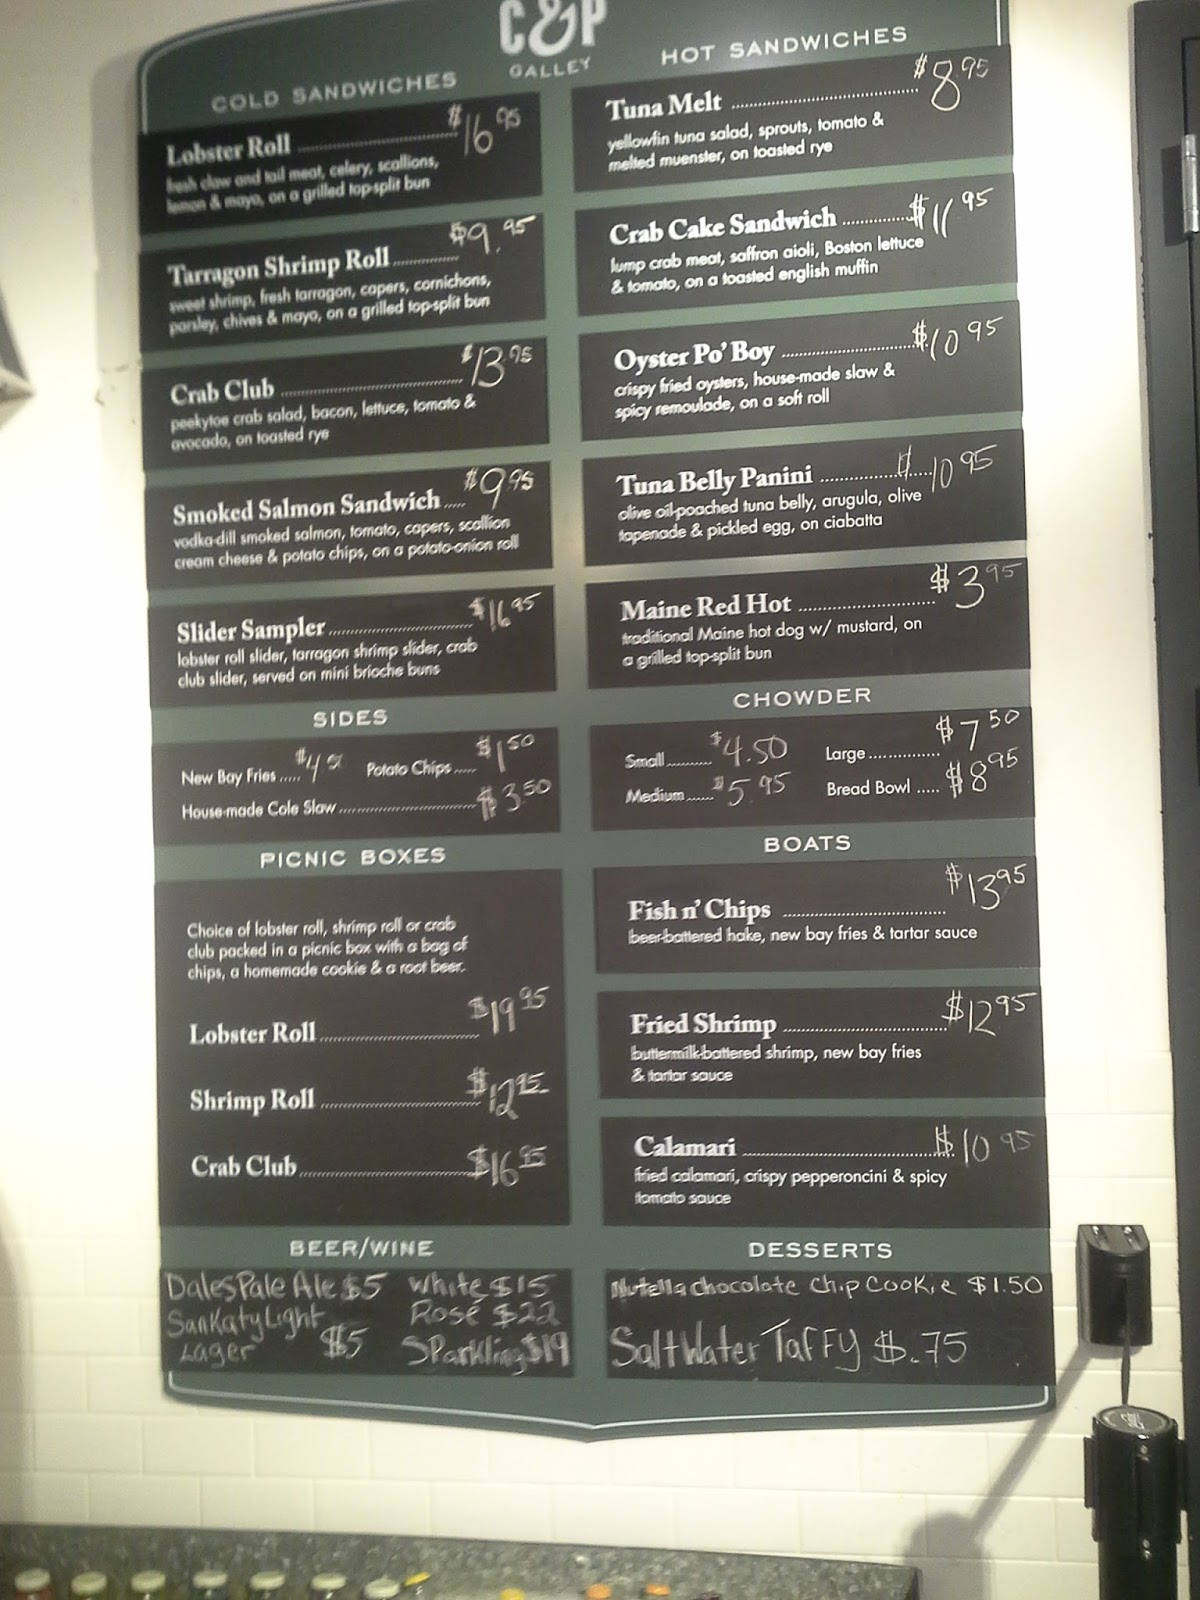 C&P
GALLEY
COLD SANDWICHES
Lobster Roll $16.95
fresh claw and tail meat, celery, scallions,
lemon & mayo, on a grilled top-split bun
Tarragon Shrimp Roll $9.95
sweet shrimp, fresh tarragon, capers, cornichons,
parsley, chives & mayo, on a grilled top-split bun
Crab Club $13.95
peekytoe crab salad, bacon, lettuce, tomato &
avocado, on toasted rye
Smoked Salmon Sandwich $9.95
vodka-dill smoked salmon, tomato, capers, scallion
cream cheese & potato chips, on a potato-onion roll
Slider Sampler $16.95
lobster roll slider, tarragon shrimp slider, crab
club slider, served on mini brioche buns
SIDES
New Bay Fries Potato Chips $1.50
House-made Cole Slaw $3.50
PICNIC BOXES
Choice of lobster roll, shrimp roll or crab
club packed in a picnic box with a bag of
chips, a homemade cookie & a root beer.
Lobster Roll $19.95
Shrimp Roll $12.95
Crab Club $16.95
BEER/WINE
Dales Pale Ale $5 White $15
Sankaty Light Rosé $22
Lager $5 Sparkling $19
HOT SANDWICHES
Tuna Melt $8.95
yellowfin tuna salad, sprouts, tomato &
melted muenster, on toasted rye
Crab Cake Sandwich $11.95
lump crab meat, saffron aioli, Boston lettuce
& tomato, on a toasted english muffin
Oyster Po' Boy $10.95
crispy fried oysters, house-made slaw &
spicy remoulade, on a soft roll
Tuna Belly Panini $10.95
olive oil-poached tuna belly, arugula, olive
tapenade & pickled egg, on ciabatta
Maine Red Hot $3.95
traditional Maine hot dog w/ mustard, on
a grilled top-split bun
CHOWDER
Small $4.50 Large $7.50
Medium $5.95 Bread Bowl $8.95
BOATS
Fish n' Chips $13.95
beer-battered hake, new bay fries & tartar sauce
Fried Shrimp $12.95
buttermilk-battered shrimp, new bay fries
& tartar sauce
Calamari $10.95
fried calamari, crispy pepperoncini & spicy
tomato sauce
DESSERTS
Nutella Chocolate Chip Cookie $1.50
Salt Water Taffy $.75